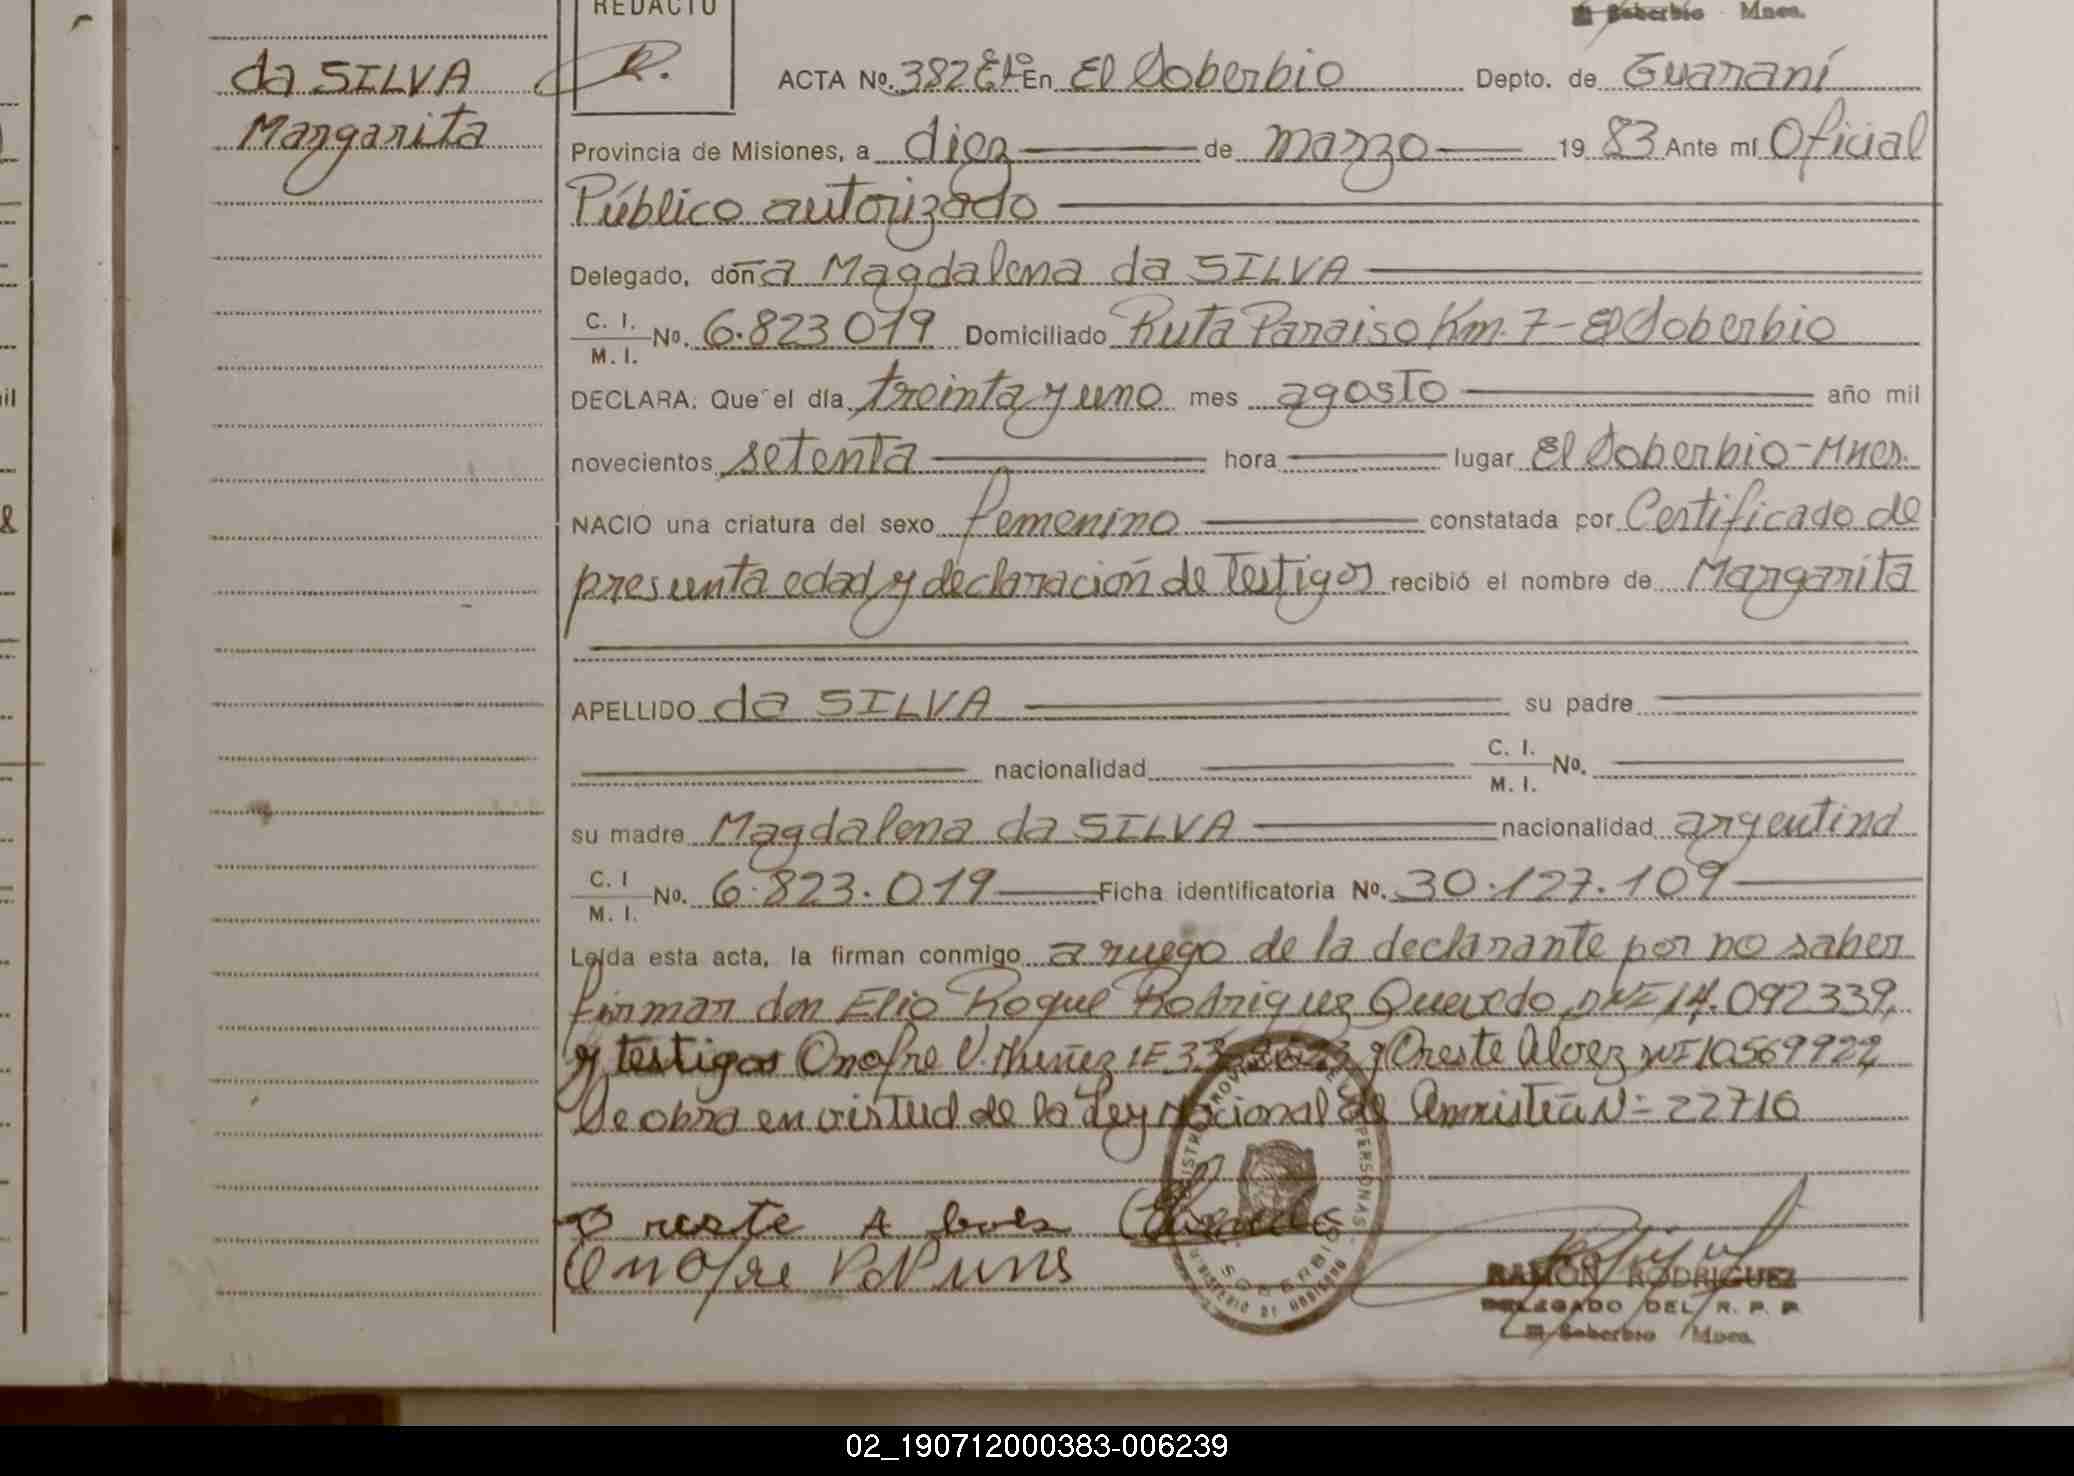 REDACTO
Soberbio Mnes.
da SILVA
Margarita
R.
ACTA No. 382 En El Soberbio Depto. de Guaraní
Provincia de Misiones, a diez de marzo 1983 Ante mí Oficial
Público autorizado
Delegado, doña Magdalena da SILVA
C. I. M. I. No. 6.823 019 Domiciliado Ruta Paraiso Km. 7 - El Soberbio
DECLARA: Que el día treinta y uno mes agosto año mil
novecientos setenta hora lugar El Soberbio - Mnes.
NACIO una criatura del sexo femenino constatada por Certificado de
presunta edad y declaración de Testigos recibió el nombre de Margarita
APELLIDO da SILVA su padre
nacionalidad C. I. M. I. No.
su madre Magdalena da SILVA nacionalidad argentina
C. I M. I. No. 6.823.019 Ficha identificatoria No. 30.127.109
Leída esta acta, la firman conmigo a ruego de la declarante por no saber
firmar don Elio Roque Rodriguez Quevedo, DNI 14.092339,
y testigos Onofre V. Nuñez LE y Oreste Alvez DNI 10569922,
Se obra en virtud de la Ley Nacional de Amnistía N= 22710
Oreste Alves
Onofre
SOBERBIO
PERSONAS
RAMON RODRIGUEZ
DELEGADO DEL R. P. P.
El Soberbio Mnes.
02_190712000383-006239